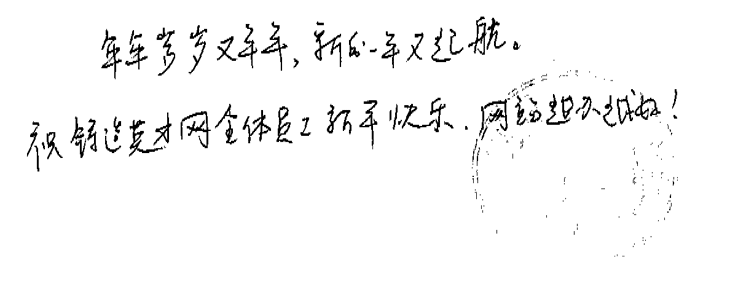 年年岁岁又年年，新的一年又起航。
祝铸造英才网全体员工新年快乐．网站越办越好！